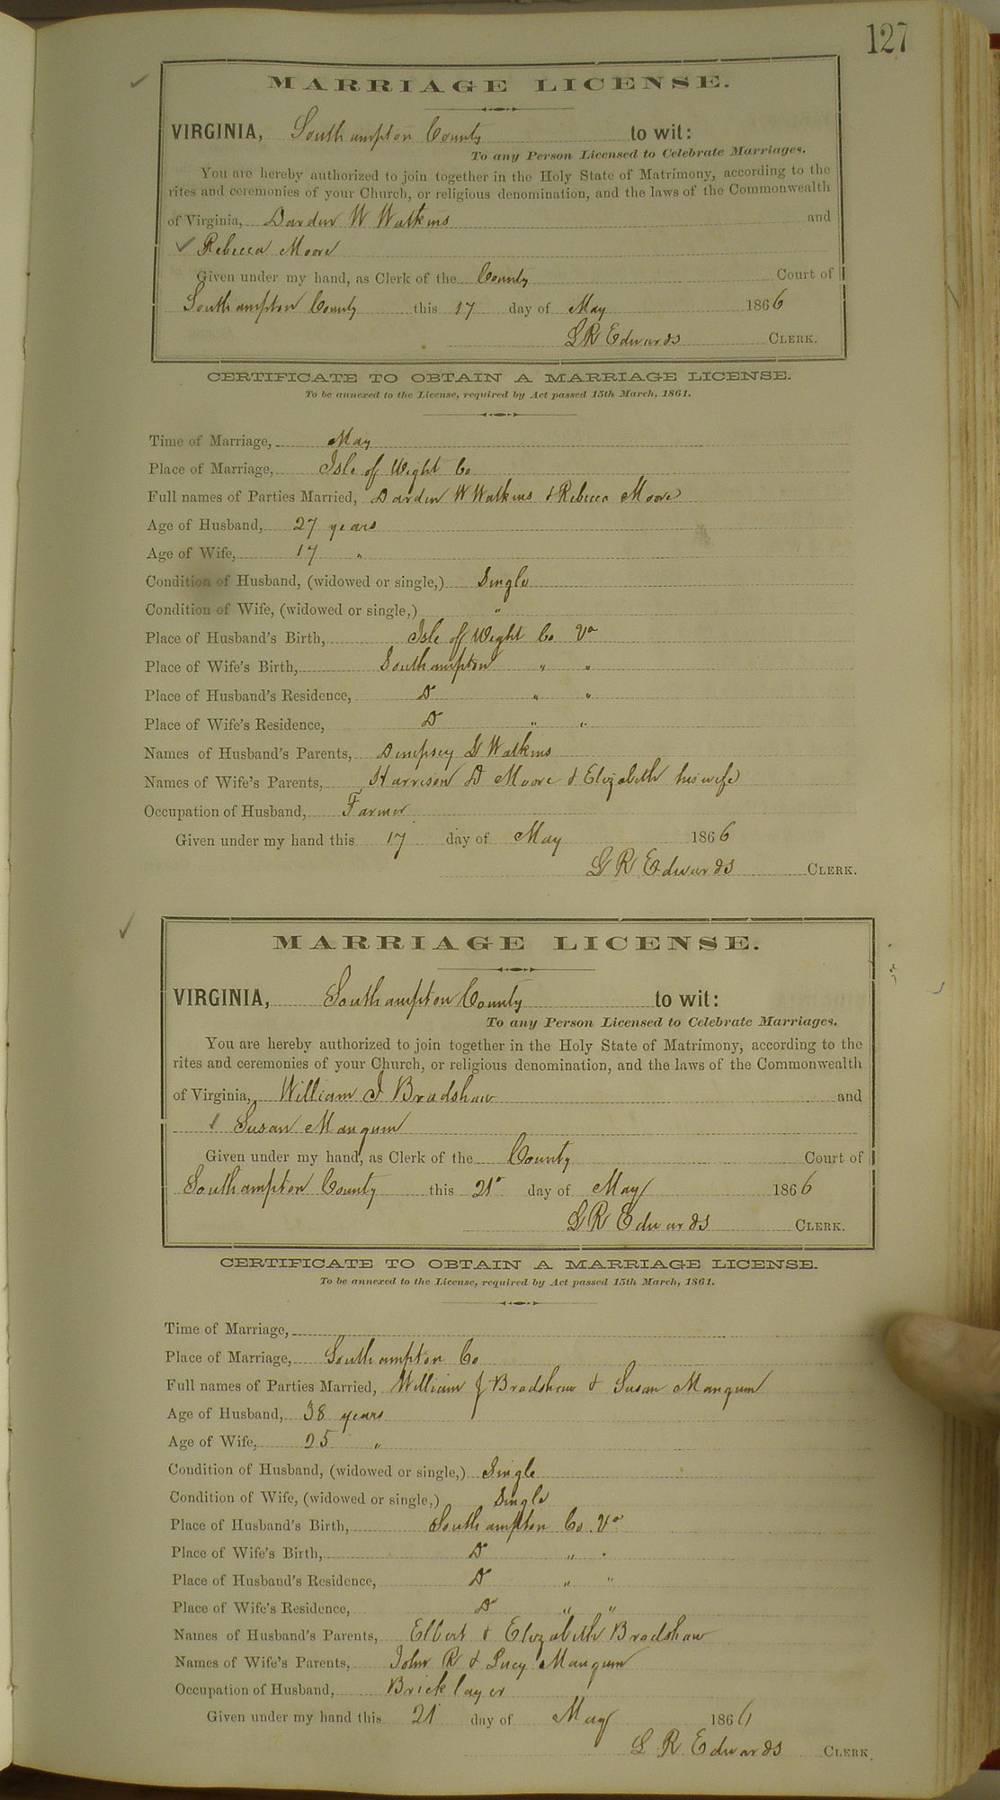 127
MARRIAGE LICENSE.
VIRGINIA, Southampton County to wit:
To any Person Licensed to Celebrate Marriages.
You are hereby authorized to join together in the Holy State of Matrimony, according to the
rites and ceremonies of your Church, or religious denomination, and the laws of the Commonwealth
of Virginia, Darden W Watkins and
Rebecca Moore
Given under my hand, as Clerk of the County Court of
Southampton County this 17 day of May 1866
L R Edwards CLERK.
CERTIFICATE TO OBTAIN A MARRIAGE LICENSE.
To be annexed to the License, required by Act passed 15th March, 1861.
Time of Marriage, May
Place of Marriage, Isle of Wight Co
Full names of Parties Married, Darden W Watkins & Rebecca Moore
Age of Husband, 27 years
Age of Wife, 17 "
Condition of Husband, (widowed or single,) Single
Condition of Wife, (widowed or single,) "
Place of Husband's Birth, Isle of Wight Co Va
Place of Wife's Birth, Southampton " "
Place of Husband's Residence, Do " "
Place of Wife's Residence, Do " "
Names of Husband's Parents, Dempsey G Watkins
Names of Wife's Parents, Harrison D Moore & Elizabeth his wife
Occupation of Husband, Farmer
Given under my hand this 17 day of May 1866
L R Edwards CLERK.
MARRIAGE LICENSE.
VIRGINIA, Southampton County to wit:
To any Person Licensed to Celebrate Marriages.
You are hereby authorized to join together in the Holy State of Matrimony, according to the
rites and ceremonies of your Church, or religious denomination, and the laws of the Commonwealth
of Virginia, William J Bradshaw and
Susan Mangum
Given under my hand, as Clerk of the County Court of
Southampton County this 21 day of May 1866
L R Edwards CLERK.
CERTIFICATE TO OBTAIN A MARRIAGE LICENSE.
To be annexed to the License, required by Act passed 15th March, 1861.
Time of Marriage,
Place of Marriage, Southampton Co
Full names of Parties Married, William J Bradshaw & Susan Mangum
Age of Husband, 38 years
Age of Wife, 25 "
Condition of Husband, (widowed or single,) Single
Condition of Wife, (widowed or single,) Single
Place of Husband's Birth, Southampton Co Va
Place of Wife's Birth, Do " "
Place of Husband's Residence, Do " "
Place of Wife's Residence, Do " "
Names of Husband's Parents, Elbert & Elizabeth Bradshaw
Names of Wife's Parents, John R & Lucy Mangum
Occupation of Husband, Brick layer
Given under my hand this 21 day of May 1866
L R Edwards CLERK.